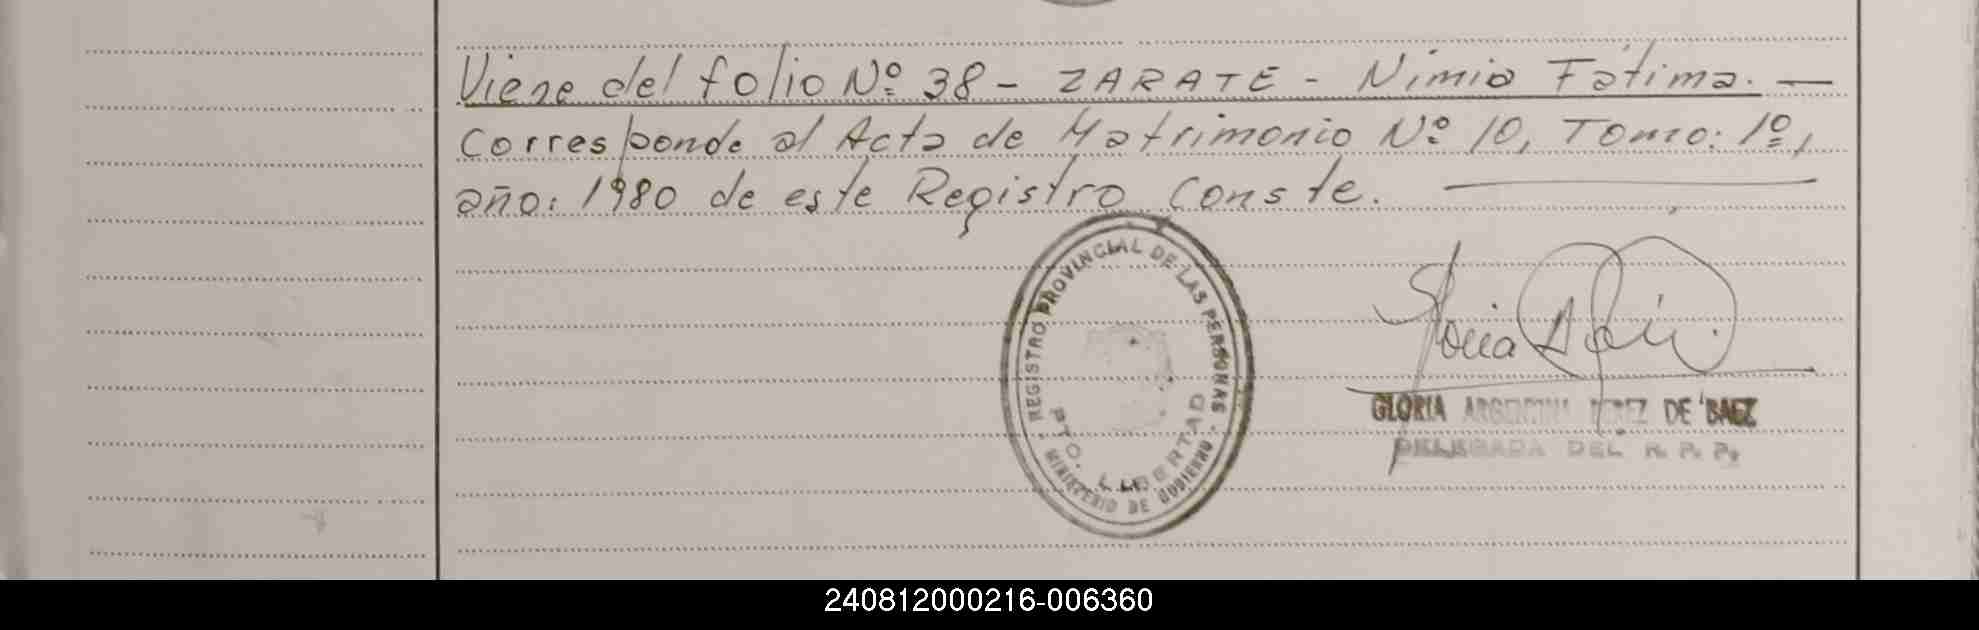 Viene del folio Nº 38 - ZARATE - Nimia Fátima. —
Corresponde al Acta de Matrimonio Nº 10, Tomo: 1º,
año: 1980 de este Registro Conste. —
REGISTRO PROVINCIAL DE LAS PERSONAS
PTO. LIBERTAD
MINISTERIO DE GOBIERNO
GLORIA ARGENTINA PEREZ DE BAEZ
DELEGADA DEL R. P. P.
240812000216-006360